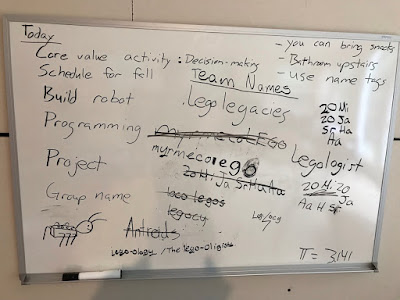 Today
Core value activity : Decision-making
Schedule for fall
Build robot
Programming
Project
Group name
- you can bring snacks
- Bathroom upstairs
- Use name tags
Team Names
Lego legacies
myrmecolEgo
myrmecolego
20 Mi Ja Sr Ha Aa
loco legos
legocy
Antroids
Lego-ology / The lego-oligists
Legologist
20 Mi
20 Ja
Sr Ha
Aa
20 Mi 20
Ja
Aa H Sr
π = 3.141